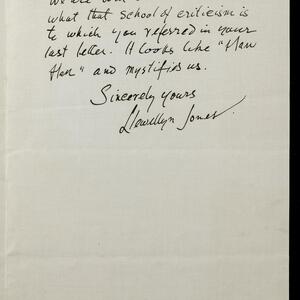 what that school of criticism is
to which you referred in your
last letter. It looks like "Han
Han" and mystifies us.
Sincerely yours
Llewellyn Jones.